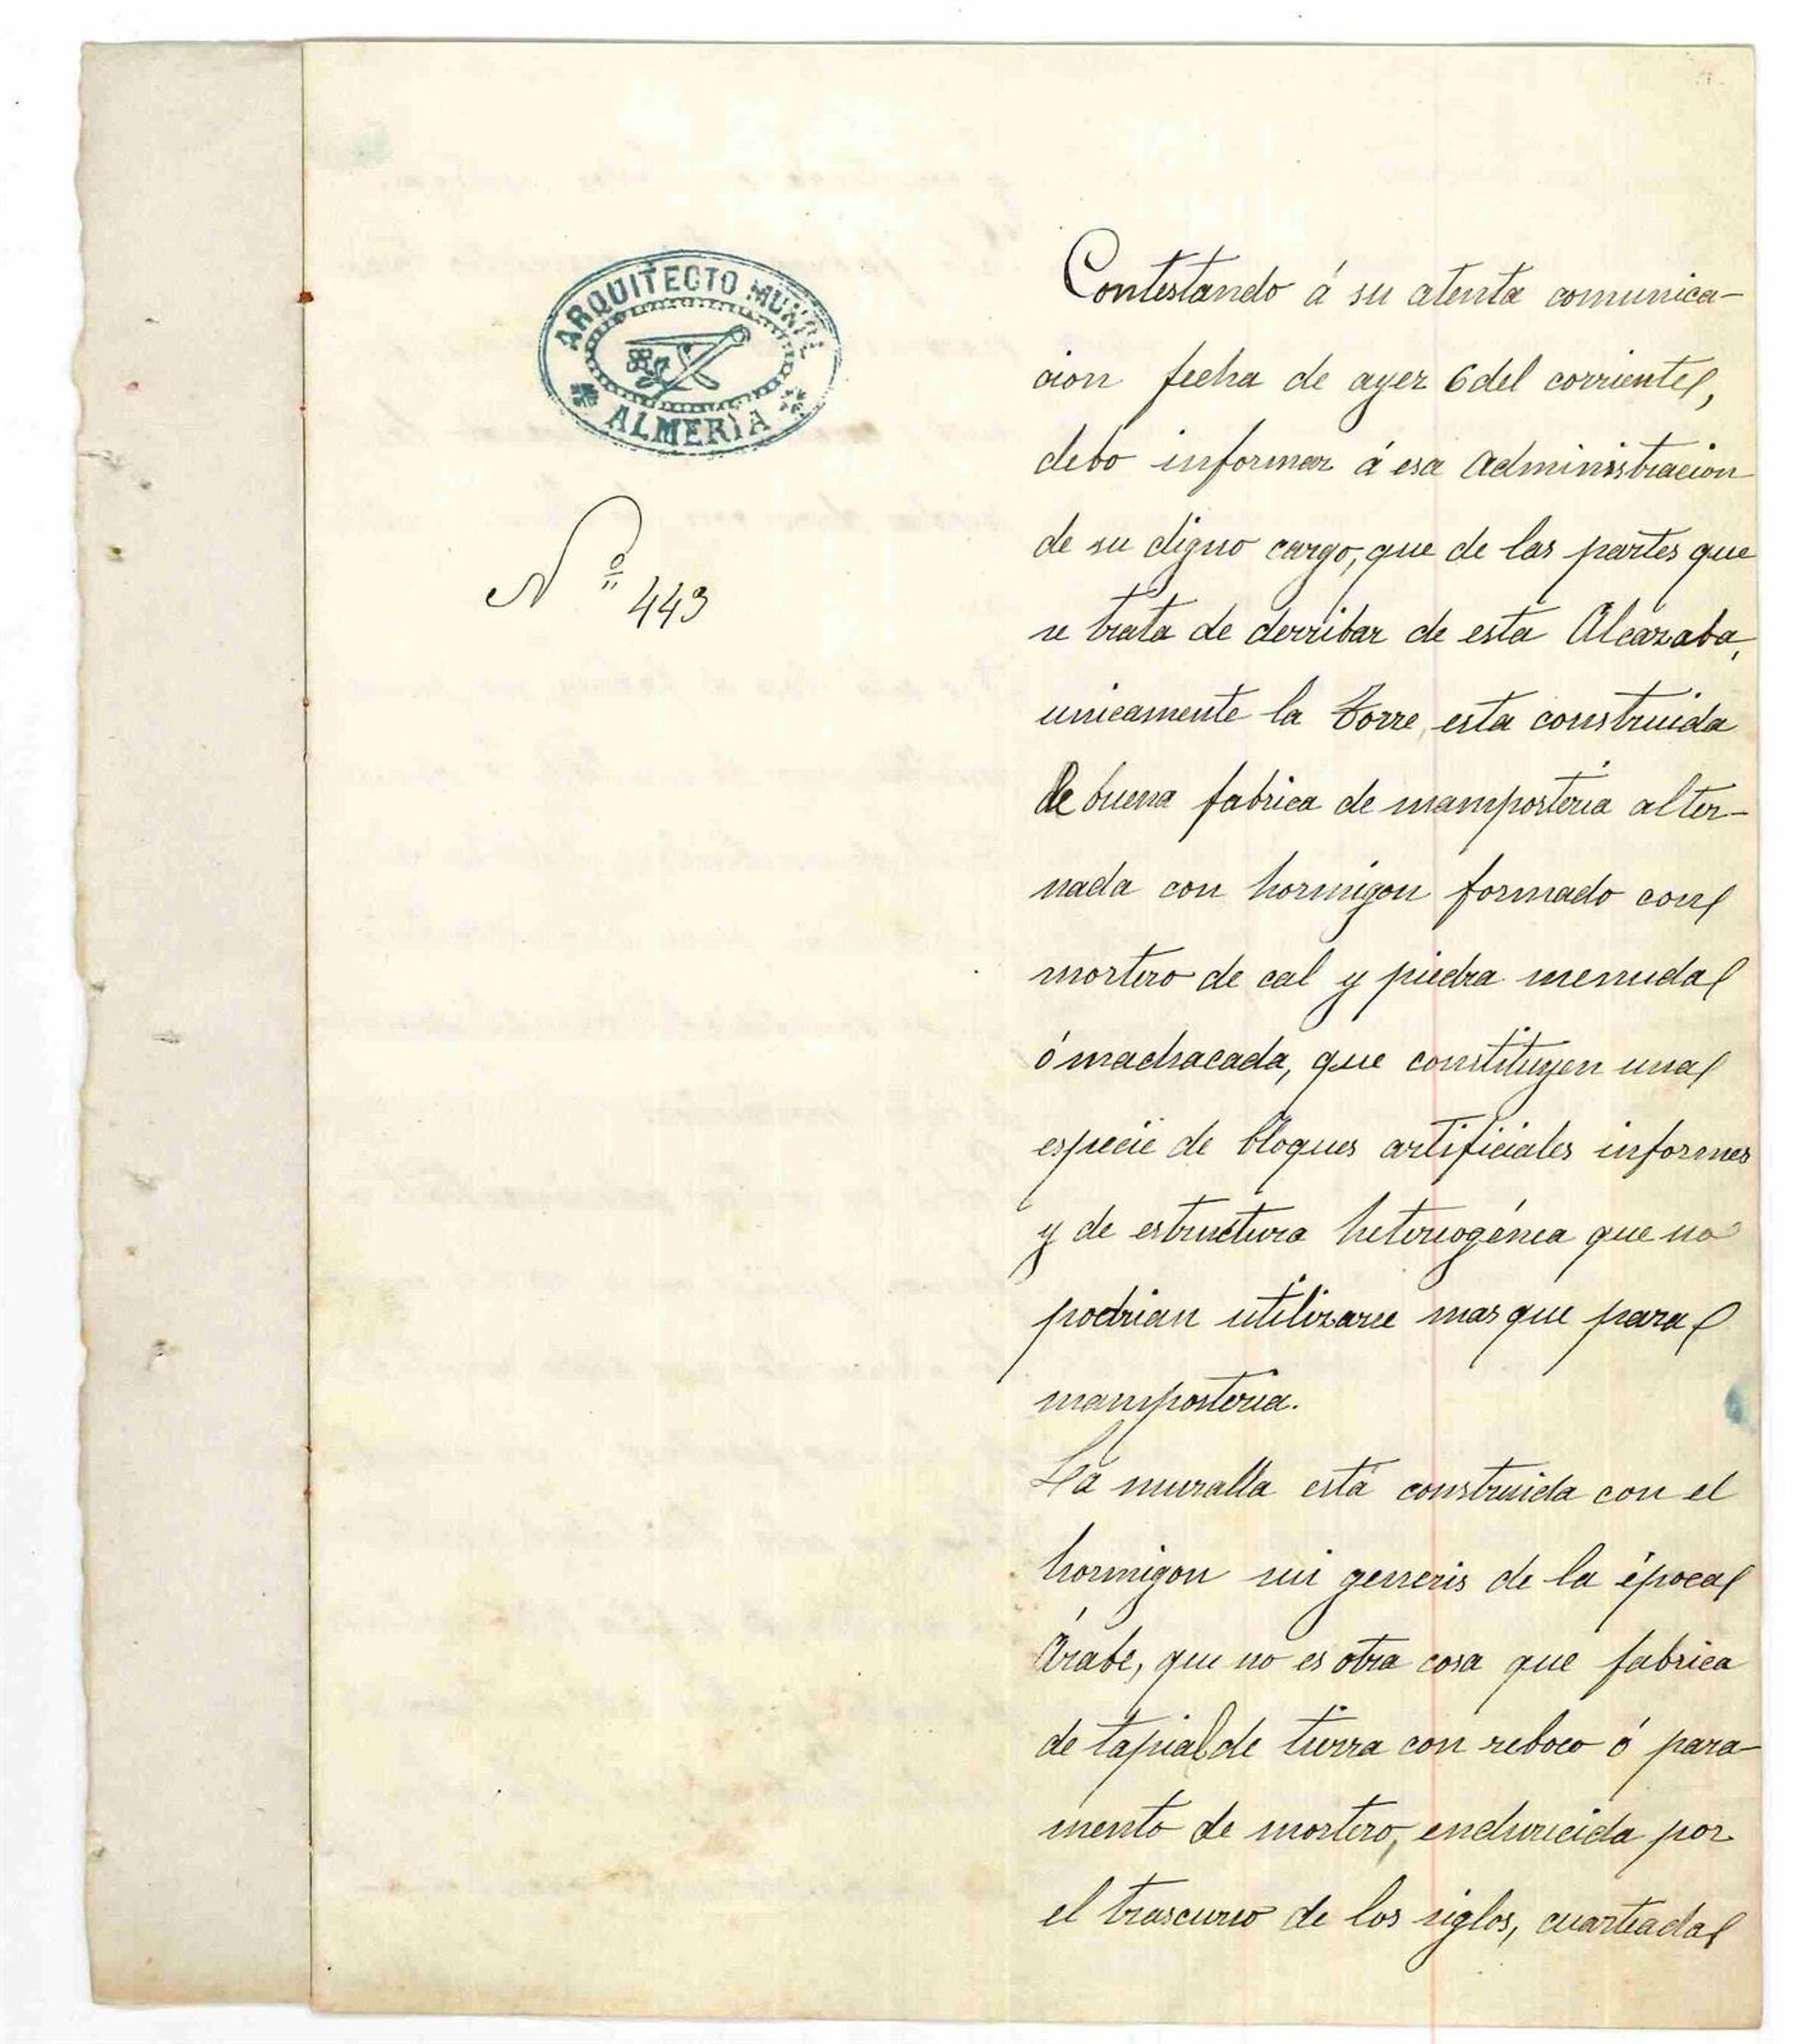 ARQUITECTO MUNPL
ALMERÍA
Nº 443
Contestando á su atenta comunica-
cion fecha de ayer 6 del corriente,
debo informar á esa Administracion
de su digno cargo, que de las partes que
se trata de derribar de esta Alcazaba,
unicamente la Torre, esta construida
de buena fabrica de mamposteria alter-
nada con hormigon formado con
mortero de cal y piedra menuda
ó machacada, que constituyen una
especie de bloques artificiales informes
y de estructura heterogénea que no
podrian utilizarse mas que para
mamposteria.
La muralla está construida con el
hormigon sui generis de la época
Árabe, que no es otra cosa que fabrica
de tapial de tierra con reboco ó para-
mento de mortero, endurecida por
el trascurso de los siglos, cuarteada